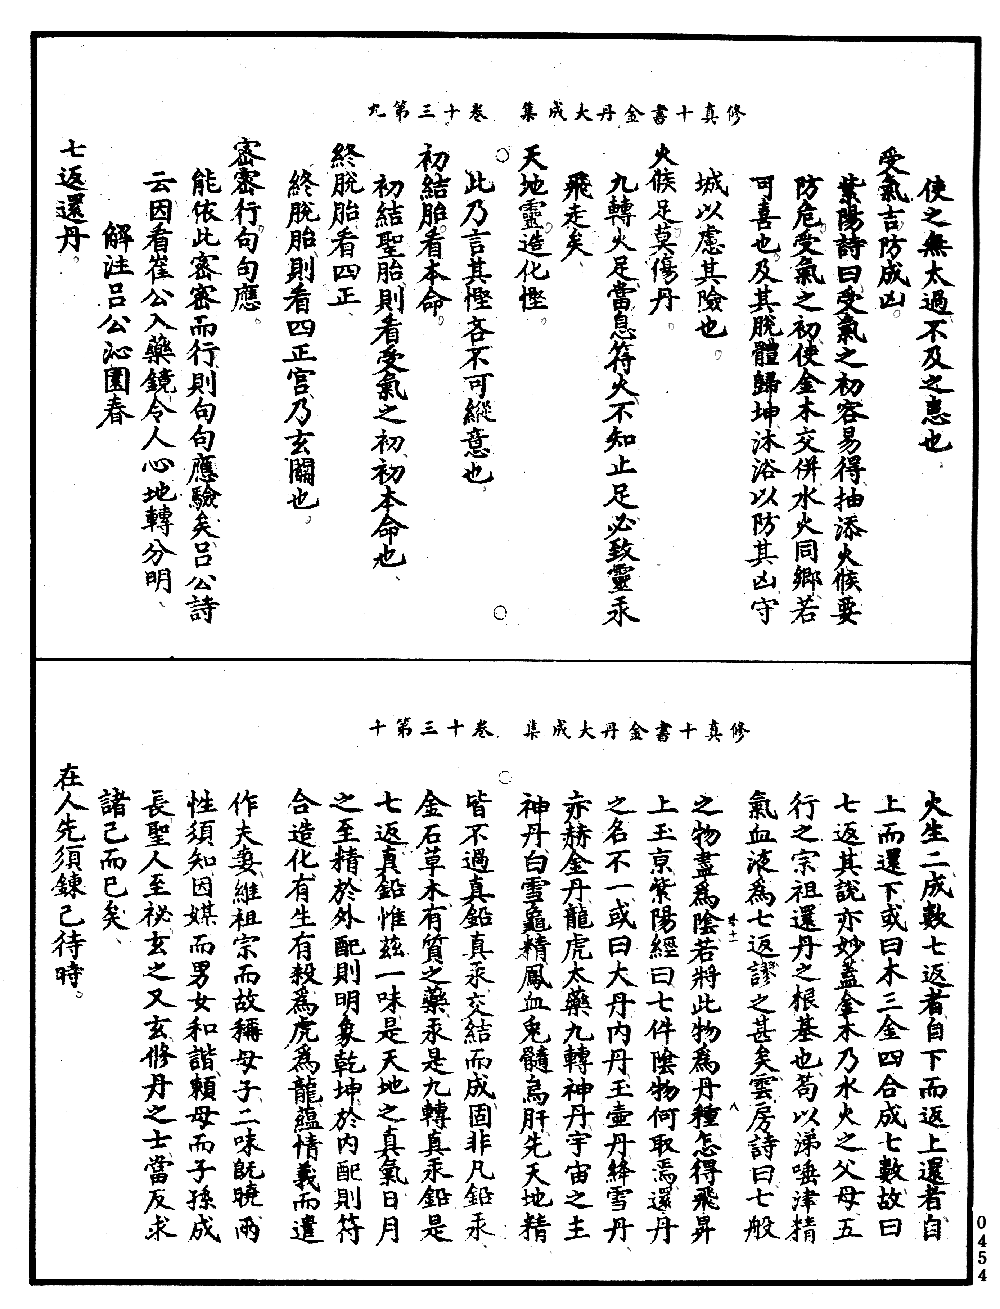 修真十書金丹大成集　卷十三第九
使之無太過不及之患也
受氣吉防成凶。
紫陽詩曰受氣之初容易得抽添火候要
防危受氣之初使金木交併水火同鄉若
可喜也及其脫體歸坤沐浴以防其凶守
城以慮其險也。
火候足莫傷丹。
九轉火足當息符火不知止足必致靈汞
飛走矣
天地靈造化慳。
此乃言其慳吝不可縱意也。
初結胎看本命。
初結聖胎則看受氣之初初本命也、
終脫胎看四正、
終脫胎則看四正宮乃玄關也。
密密行句句應。
能依此密密而行則句句應驗矣呂公詩
云因看崔公入藥鏡令人心地轉分明、
解注呂公沁園春
七返還丹。
修真十書金丹大成集　卷十三第十
火生二成數七返者自下而返上還者自
上而還下或曰木三金四合成七數故曰
七返其說亦妙蓋金木乃水火之父母五
行之宗祖還丹之根基也苟以涕唾津精
氣血液為七返謬之甚矣雲房詩曰七般
之物盡為陰若將此物為丹種怎得飛昇
上玉京紫陽經曰七件陰物何取焉還丹
之名不一或曰大丹內丹玉壺丹絳雪丹
赤赫金丹龍虎大藥九轉神丹宇宙之主
神丹白雪龜精鳳血兔髓烏肝先天地精
皆不過真鉛真汞交結而成固非凡鉛汞
金石草木有質之藥汞是九轉真汞鉛是
七返真鉛惟茲一味是天地之真氣日月
之至精於外配則明象乾坤於內配則符
合造化有生有殺為虎為龍蘊情義而遣
作夫妻維祖宗而故稱母子二味既曉兩
性須知因媒而男女和諧賴母而子孫成
長聖人至祕玄之又玄修丹之士當反求
諸己而已矣、
在人先須鍊己待時。
0454